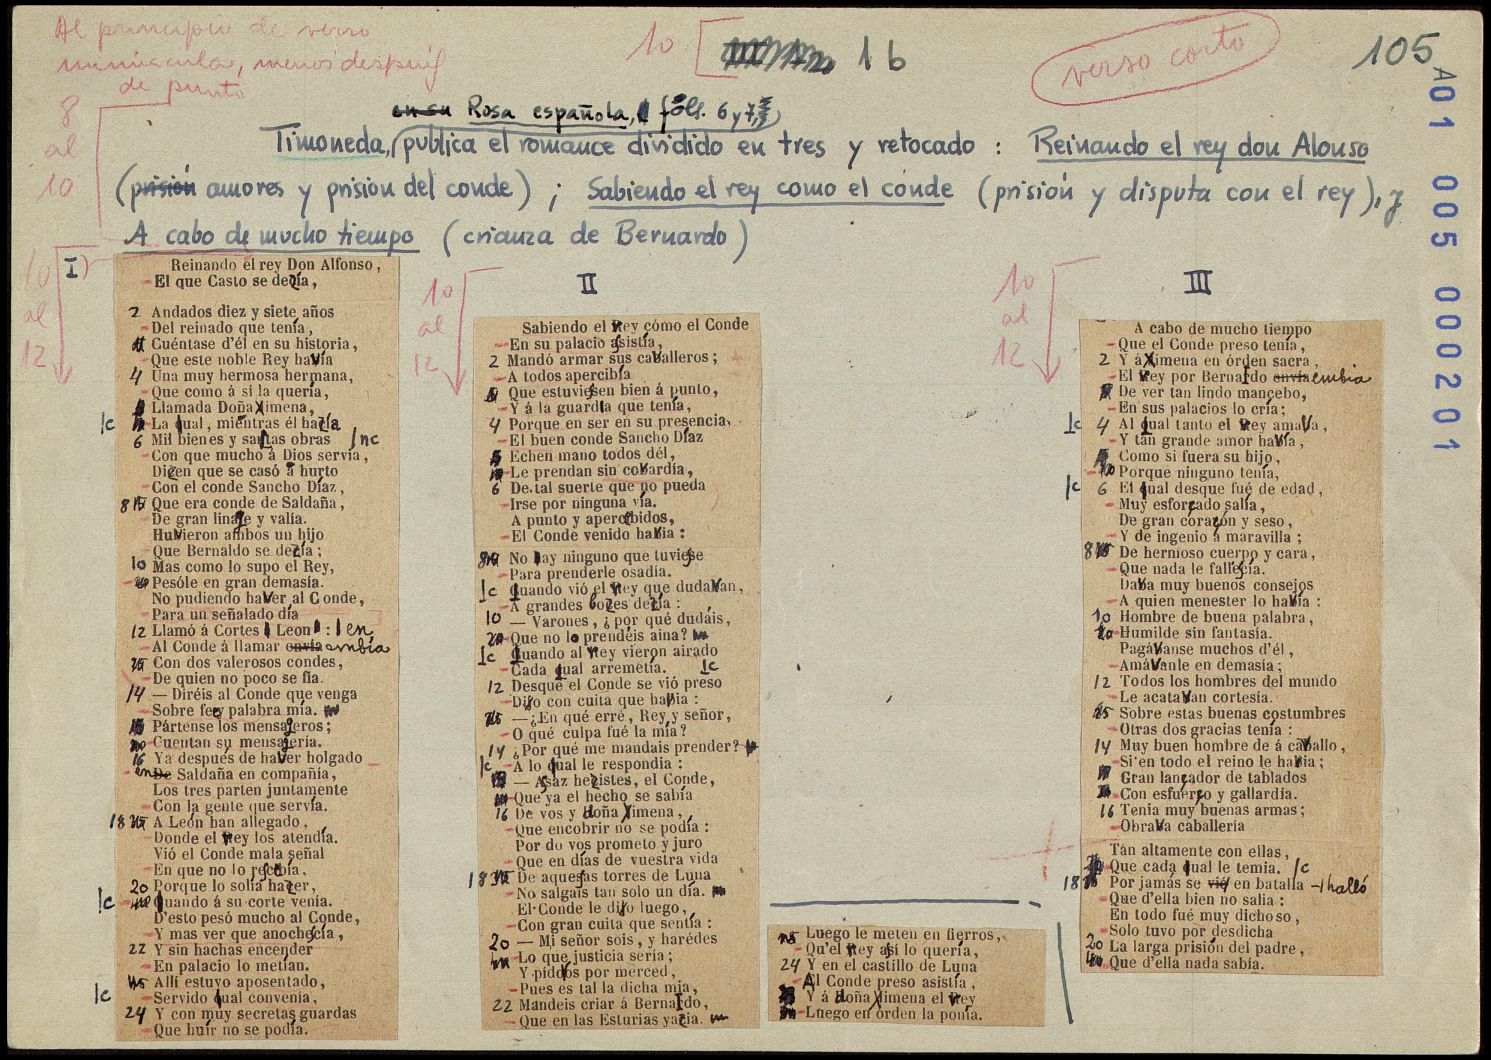 Al principio de verso
minúscula, menos después
de punto
8
al
10
10
16
verso corto
105
A01 005 000201
en su Rosa española, fols. 6 y 7,
Timoneda, publica el romance dividido en tres y retocado : Reinando el rey don Alonso
(prisión amores y prisión del conde) ; Sabiendo el rey como el conde (prisión y disputa con el rey), y
A cabo de mucho tiempo (crianza de Bernardo)
10
al
12
I
Reinando el rey Don Alfonso,
El que Casto se dezía,
2 Andados diez y siete años
Del reinado que tenía,
Cuéntase d'él en su historia,
Que este noble Rey havía
4 Una muy hermosa hermana,
Que como á sí la quería,
Llamada Doña Ximena,
lc La qual, mientras él hazía
6 Mil bienes y santas obras
Con que mucho á Dios servía,
Dizen que se casó á hurto
Con el conde Sancho Díaz,
8 Que era conde de Saldaña,
De gran linaje y valía.
Huvieron ambos un hijo
Que Bernaldo se dezía;
10 Mas como lo supo el Rey,
Pesóle en gran demasía.
No pudiendo haver al Conde,
Para un señalado día
12 Llamó á Cortes Leon : en
Al Conde á llamar envía embía
Con dos valerosos condes,
De quien no poco se fía.
14 — Diréis al Conde que venga
Sobre fe y palabra mía.
Pártense los mensajeros;
Cuentan su mensajería.
16 Ya después de haver holgado
en De Saldaña en compañía,
Los tres parten juntamente
Con la gente que servía.
18 A León han allegado,
Donde el Rey los atendía.
Vió el Conde mala señal
En que no lo recebía,
20 Porque lo solía hazer,
lc Quando á su corte venía.
D'esto pesó mucho al Conde,
Y mas ver que anochecía,
22 Y sin hachas encender
En palacio lo metían.
Allí estuvo aposentado,
lc Servido qual convenía,
24 Y con muy secretas guardas
Que huír no se podía.
10
al
12
II
Sabiendo el Rey cómo el Conde
En su palacio assistía,
2 Mandó armar sus cavalleros;
A todos apercibía
Que estuviessen bien á punto,
Y á la guardia que tenía,
4 Porque en ser en su presencia,
El buen conde Sancho Díaz
Echen mano todos dél,
Le prendan sin cobardía,
6 De tal suerte que no pueda
Irse por ninguna vía.
A punto y apercebidos,
El Conde venido había :
8 No hay ninguno que tuviesse
Para prenderle osadía.
lc Quando vió el Rey que dudavan,
A grandes bozes dezía :
10 — Varones, ¿por qué dudáis,
Que no lo prendéis aina?
lc Quando al Rey vieron airado
Cada qual arremetía. lc
12 Desque el Conde se vió preso
Dijo con cuita que había :
— ¿En qué erré, Rey y señor,
O qué culpa fué la mía?
14 ¿Por qué me mandais prender?
lc A lo qual le respondia :
— Assaz hezistes, el Conde,
Que ya el hecho se sabía
16 De vos y doña Ximena,
Que encobrir no se podía :
Por do vos prometo y juro
Que en días de vuestra vida
18 De aquessas torres de Luna
No salgais tan solo un día.
El Conde le dijo luego,
Con gran cuita que sentía :
20 — Mi señor sois, y harédes
Lo que justicia sería;
Y pídoos por merced,
Pues es tal la dicha mia,
22 Mandeis criar á Bernardo,
Que en las Esturias yazia.
Luego le meten en fierros,
Qu'el Rey assi lo quería,
24 Y en el castillo de Luna
Al Conde preso asistía,
Y á doña Ximena el Rey
Luego en órden la ponía.
10
al
12
III
A cabo de mucho tiempo
Que el Conde preso tenía,
2 Y á Ximena en órden sacra,
El Rey por Bernaldo envía embia
De ver tan lindo mancebo,
En sus palacios lo cría;
lc 4 Al qual tanto el Rey amava,
Y tan grande amor havía,
Como si fuera su hijo,
Porque ninguno tenía,
lc 6 El qual desque fué de edad,
Muy esforçado salía,
De gran coraçón y seso,
Y de ingenio á maravilla;
8 De hermoso cuerpo y cara,
Que nada le fallecía.
Dava muy buenos consejos
A quien menester lo havía :
10 Hombre de buena palabra,
Humilde sin fantasía.
Pagávanse muchos d'él,
Amávanle en demasía;
12 Todos los hombres del mundo
Le acatavan cortesía.
Sobre estas buenas costumbres
Otras dos gracias tenía :
14 Muy buen hombre de á cavallo,
Si en todo el reino le havia;
Gran lançador de tablados
Con esfuerço y gallardía.
16 Tenia muy buenas armas;
Obrava caballería
Tán altamente con ellas,
Que cada qual le temía. lc
18 Por jamás se vió en batalla halló
Que d'ella bien no salia :
En todo fué muy dichoso,
Solo tuvo por desdicha
20 La larga prisión del padre,
Que d'ella nada sabía.